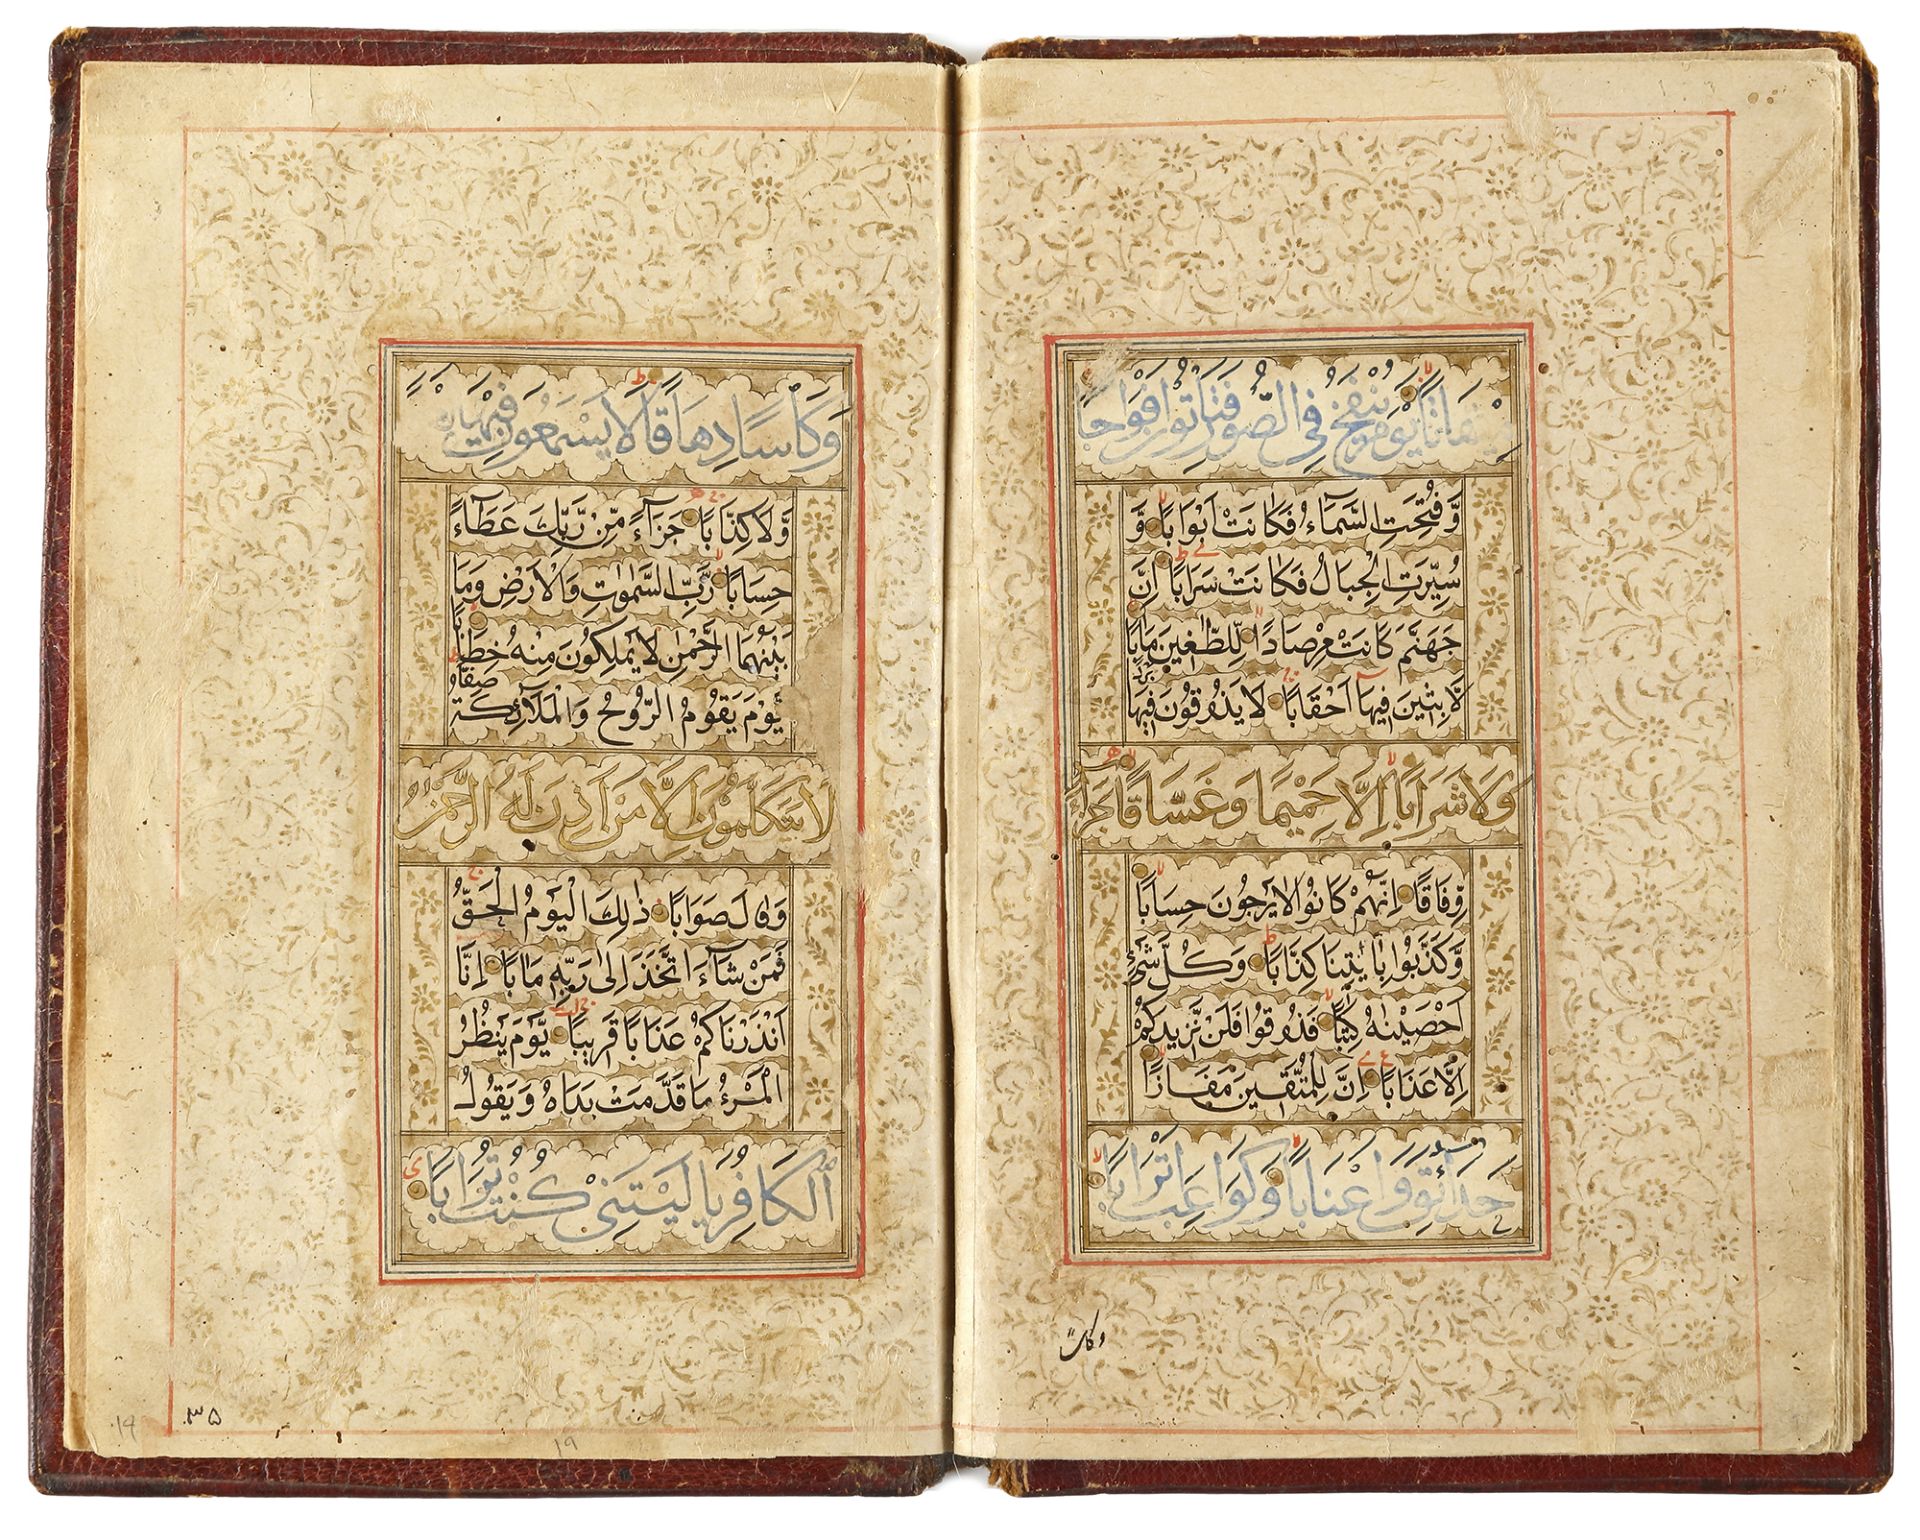 مِيْقَاتًا يَوْمَ يُنْفَخُ فِي الصُّوْرِ فَتَاْتُوْنَ اَفْوَاجًا
وَّ فُتِحَتِ السَّمَآءُ فَكَانَتْ اَبْوَابًا وَّ
سُيِّرَتِ الْجِبَالُ فَكَانَتْ سَرَابًا اِنَّ
جَهَنَّمَ كَانَتْ مِرْصَادًا لِّلطّٰغِيْنَ مَاٰبًا
لّٰبِثِيْنَ فِيْهَآ اَحْقَابًا لَا يَذُوْقُوْنَ فِيْهَا بَرْدًا
وَّلَا شَرَابًا اِلَّا حَمِيْمًا وَّ غَسَّاقًا جَزَآءً
وِّفَاقًا اِنَّهُمْ كَانُوْا لَا يَرْجُوْنَ حِسَابًا
وَّ كَذَّبُوْا بِاٰيٰتِنَا كِذَّابًا وَ كُلَّ شَيْءٍ
اَحْصَيْنٰهُ كِتٰبًا فَذُوْقُوْا فَلَنْ نَّزِيْدَكُمْ
اِلَّا عَذَابًا اِنَّ لِلْمُتَّقِيْنَ مَفَازًا
حَدَآئِقَ وَ اَعْنَابًا وَّكَوَاعِبَ اَتْرَابًا
وكاسا
وَّ كَاْسًا دِهَاقًا لَا يَسْمَعُوْنَ فِيْهَا لَغْوًا
وَّلَا كِذّٰبًا جَزَآءً مِّنْ رَّبِّكَ عَطَآءً
حِسَابًا رَّبِّ السَّمٰوٰتِ وَالْاَرْضِ وَمَا
بَيْنَهُمَا الرَّحْمٰنِ لَا يَمْلِكُوْنَ مِنْهُ خِطَابًا
يَوْمَ يَقُوْمُ الرُّوْحُ وَالْمَلٰٓئِكَةُ صَفًّا
لَا يَتَكَلَّمُوْنَ اِلَّا مَنْ اَذِنَ لَهُ الرَّحْمٰنُ
وَقَالَ صَوَابًا ذٰلِكَ الْيَوْمُ الْحَقُّ
فَمَنْ شَآءَ اتَّخَذَ اِلٰى رَبِّهٖ مَاٰبًا اِنَّا
اَنْذَرْنَاكُمْ عَذَابًا قَرِيْبًا يَّوْمَ يَنْظُرُ
الْمَرْءُ مَا قَدَّمَتْ يَدَاهُ وَيَقُوْلُ
الْكَافِرُ يَا لَيْتَنِيْ كُنْتُ تُرَابًا
٣٥
19
19